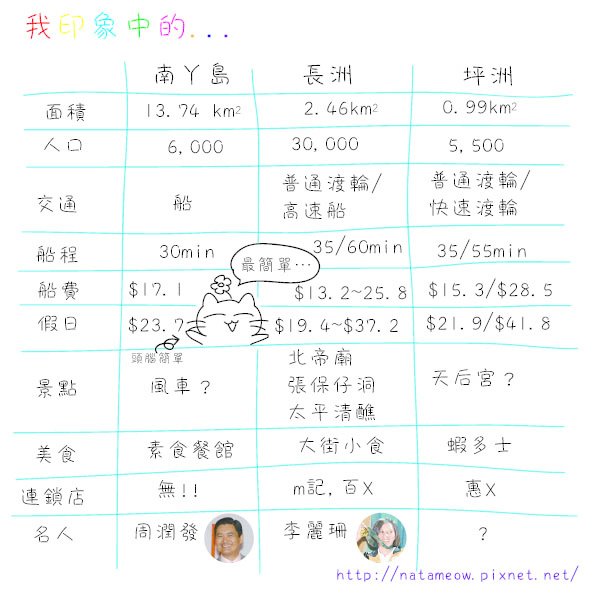 我印象中的...
南丫島 長洲 坪洲
面積 13.74 km² 2.46km² 0.99km²
人口 6,000 30,000 5,500
交通 船 普通渡輪/ 普通渡輪/
高速船 快速渡輪
船程 30min 35/60min 35/55min
最簡單…
船費 $17.1 $13.2~25.8 $15.3/$28.5
假日 $23.7 $19.4~$37.2 $21.9/$41.8
頭腦簡單
景點 風車？ 北帝廟 天后宮？
張保仔洞
太平清醮
美食 素食餐館 大街小食 蝦多士
連鎖店 無!! m記,百X 惠X
名人 周潤發 李麗珊 ？
http://natameow.pixnet.net/